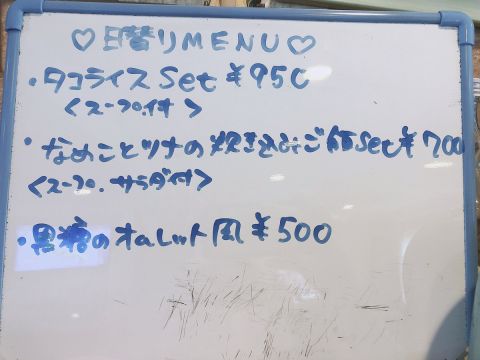 ♡日替りMENU♡
・タコライスSet ¥950
<スープ付>
・なめことツナの炊き込みご飯Set ¥700
<スープ・サラダ付>
・黒糖のオムレット風 ¥500